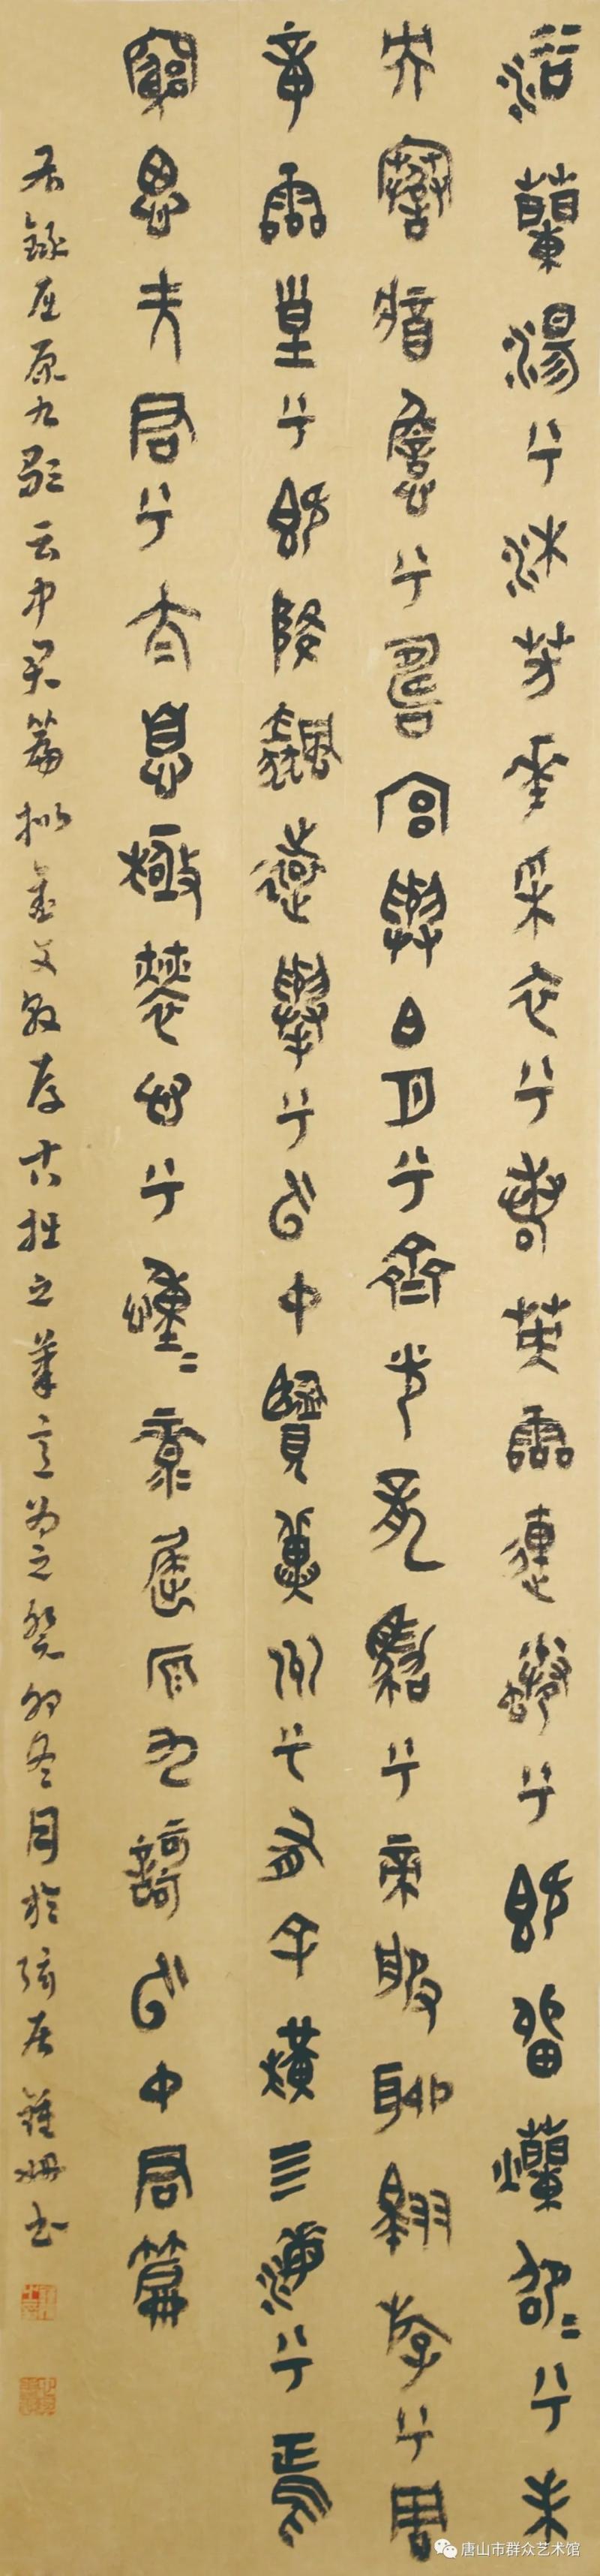 浴蘭湯兮沐芳華采衣兮若英靈連蜷兮既留爛昭=兮未
央謇將憺兮壽宮與日月兮齊光龍駕兮帝服聊翱游兮周
章靈皇兮既降飆遠舉兮云中覽冀州兮有余橫四海兮焉
窮思夫君兮太息極勞心兮𢥞=录屈原九謌云中君篇
右錄屈原九歌云中君篇拟金文存古拙之筆意为之癸卯冬月於居书
唐山市群众艺术馆